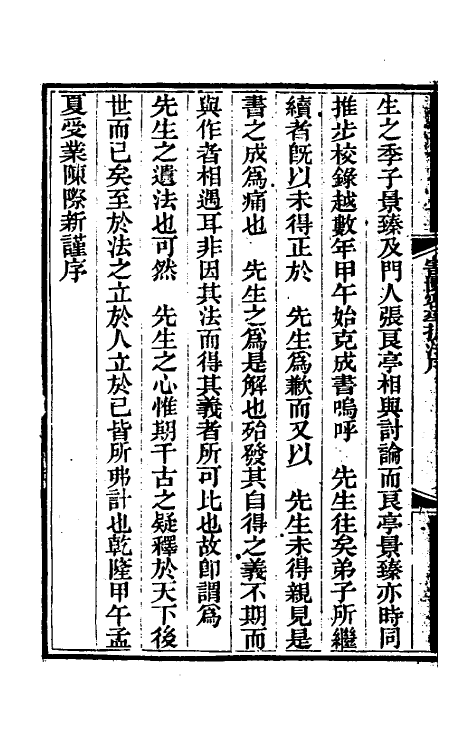 生之季子景臻及門人張良亭相與討論而良亭景臻亦時同
推步校錄越數年甲午始克成書嗚呼　先生往矣弟子所繼
續者旣以未得正於　先生爲歉而又以　先生未得親見是
書之成爲痛也　先生之爲是解也殆發其自得之義不期而
與作者相遇耳非因其法而得其義者所可比也故卽謂爲
先生之遺法也可然　先生之心惟期千古之疑釋於天下後
世而已矣至於法之立於人立於已皆所弗計也乾隆甲午孟
夏受業陳際新謹序